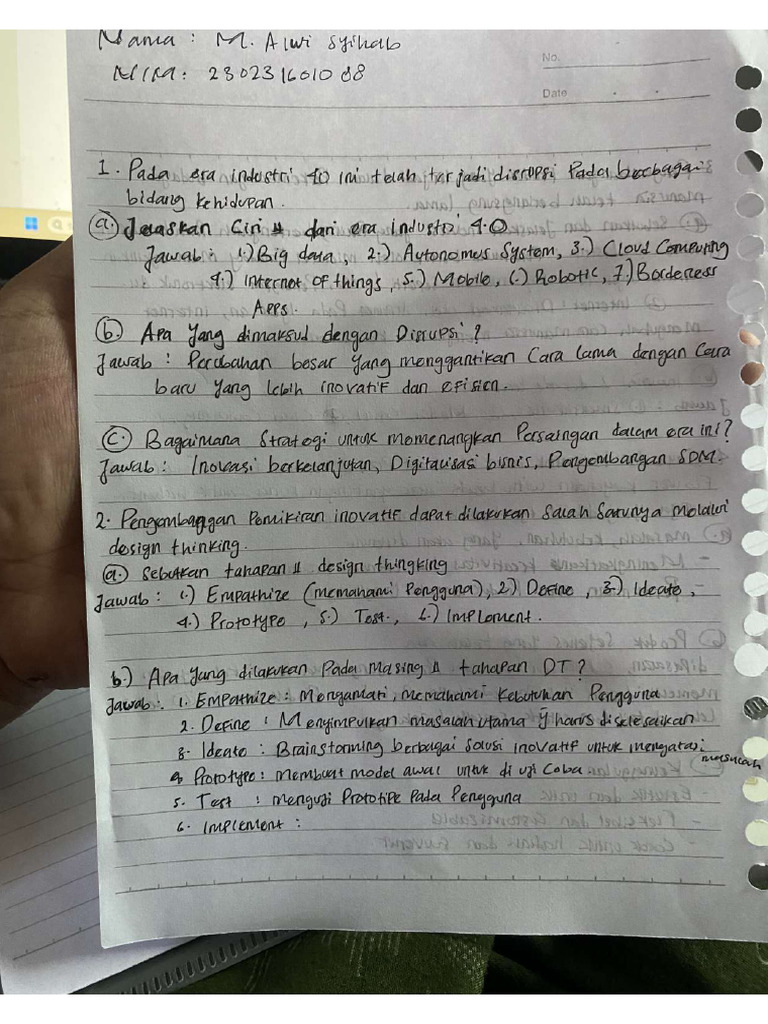 Nama : M. Alwi Syihab
NIM : 230231601088
No.
Date
1. Pada era industri 4.0 ini telah terjadi disrupsi Pada berbagai
bidang kehidupan.
a. Jelaskan Ciri" dari era industri 4.0
Jawab : 1.) Big data, 2.) Autonomus System, 3.) Cloud Computing
4.) Internet of things, 5.) Mobile, 6.) Robotic, 7.) Borderless
Apps.
b. Apa yang dimaksud dengan Disrupsi ?
Jawab : Perubahan besar yang menggantikan Cara lama dengan Cara
baru yang lebih inovatif dan efisien.
c. Bagaimana Strategi untuk memenangkan Persaingan dalam era ini?
Jawab : Inovasi berkelanjutan, Digitalisasi bisnis, Pengembangan SDM.
2. Pengembangan Pemikiran inovatif dapat dilakukan Salah Satunya melalui
design thinking.
a.) Sebutkan tahapan" design thingking
Jawab : 1.) Empathize (memahami Pengguna), 2.) Define, 3.) Ideate,
4.) Prototype, 5.) Test., 6.) Implement.
b.) Apa yang dilakukan Pada masing" tahapan DT ?
Jawab : 1. Empathize : Mengamati, memahami Kebutuhan Pengguna
2. Define : Menyimpulkan masalah utama yg harus diselesaikan
3. Ideate : Brainstorming berbagai Solusi inovatif untuk mengatasi
masalah
4. Prototype : membuat model awal untuk di uji Coba
5. Test : menguji Prototipe Pada Pengguna
6. Implement :